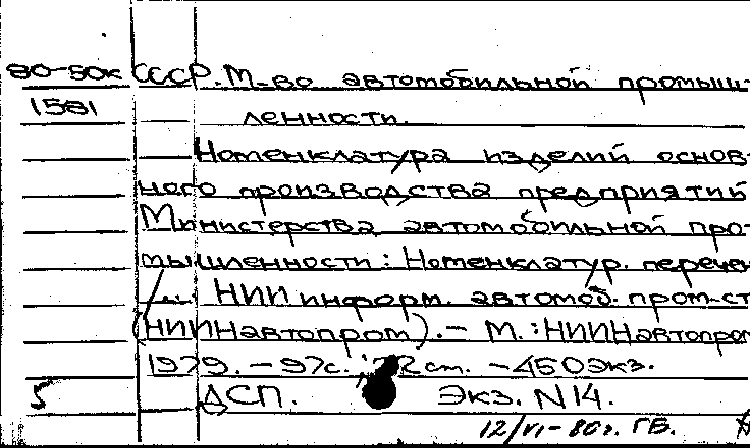 80-50к СССР. М-во автомобильной промыш-
1581 ленности.
Номенклатура изделий основ-
ного производства предприятий
Министерства автомобильной про-
мышленности: Номенклатур. перечен
НИИ информ. автомоб. пром-ст
(НИИНавтопром). - М.: НИИНавтопро
1979. - 97с. 22 см. - 450экз.
5 ДСП. Экз. N 14.
12/VI-80г. ГБ.